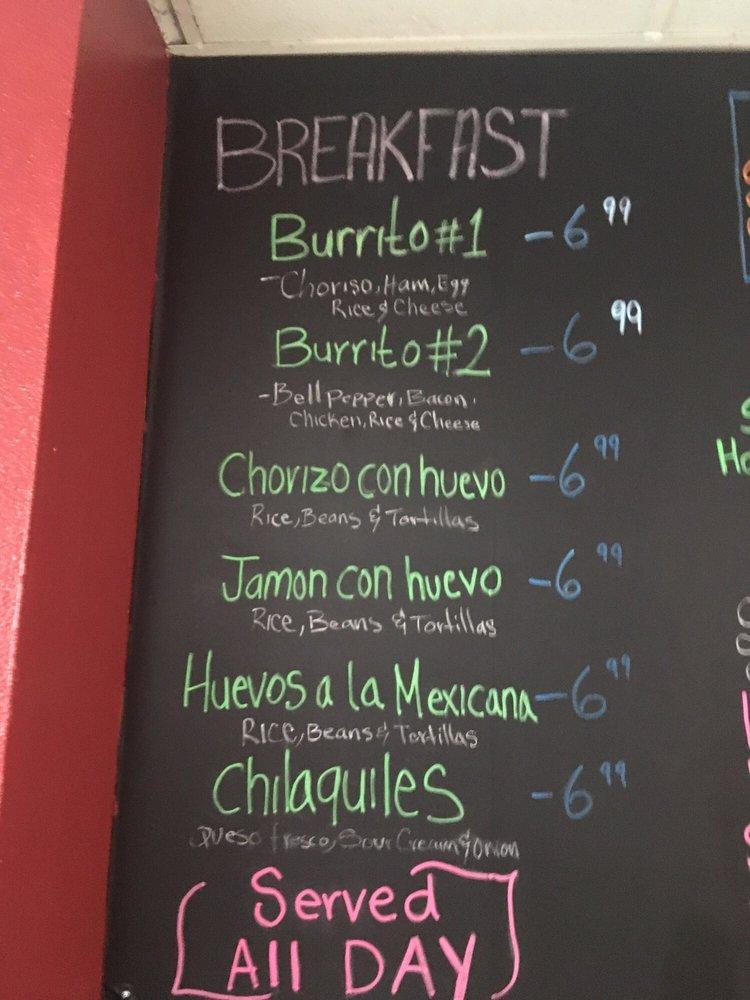 BREAKFAST
Burrito #1 - 6 99
- Choriso, Ham, Egg
Rice & Cheese
Burrito #2 - 6 99
- Bell Pepper, Bacon,
Chicken, Rice & Cheese
Chorizo con huevo - 6 99
Rice, Beans & Tortillas
Jamon con huevo - 6 99
Rice, Beans & Tortillas
Huevos a la Mexicana - 6 99
RICE, Beans & Tortillas
Chilaquiles - 6 99
Queso fresco, Sour Cream & Onion
Served
All DAY